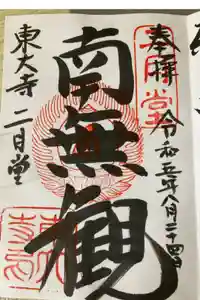 奉拝 令和五年八月二十四日
南無観
東大寺 二月堂